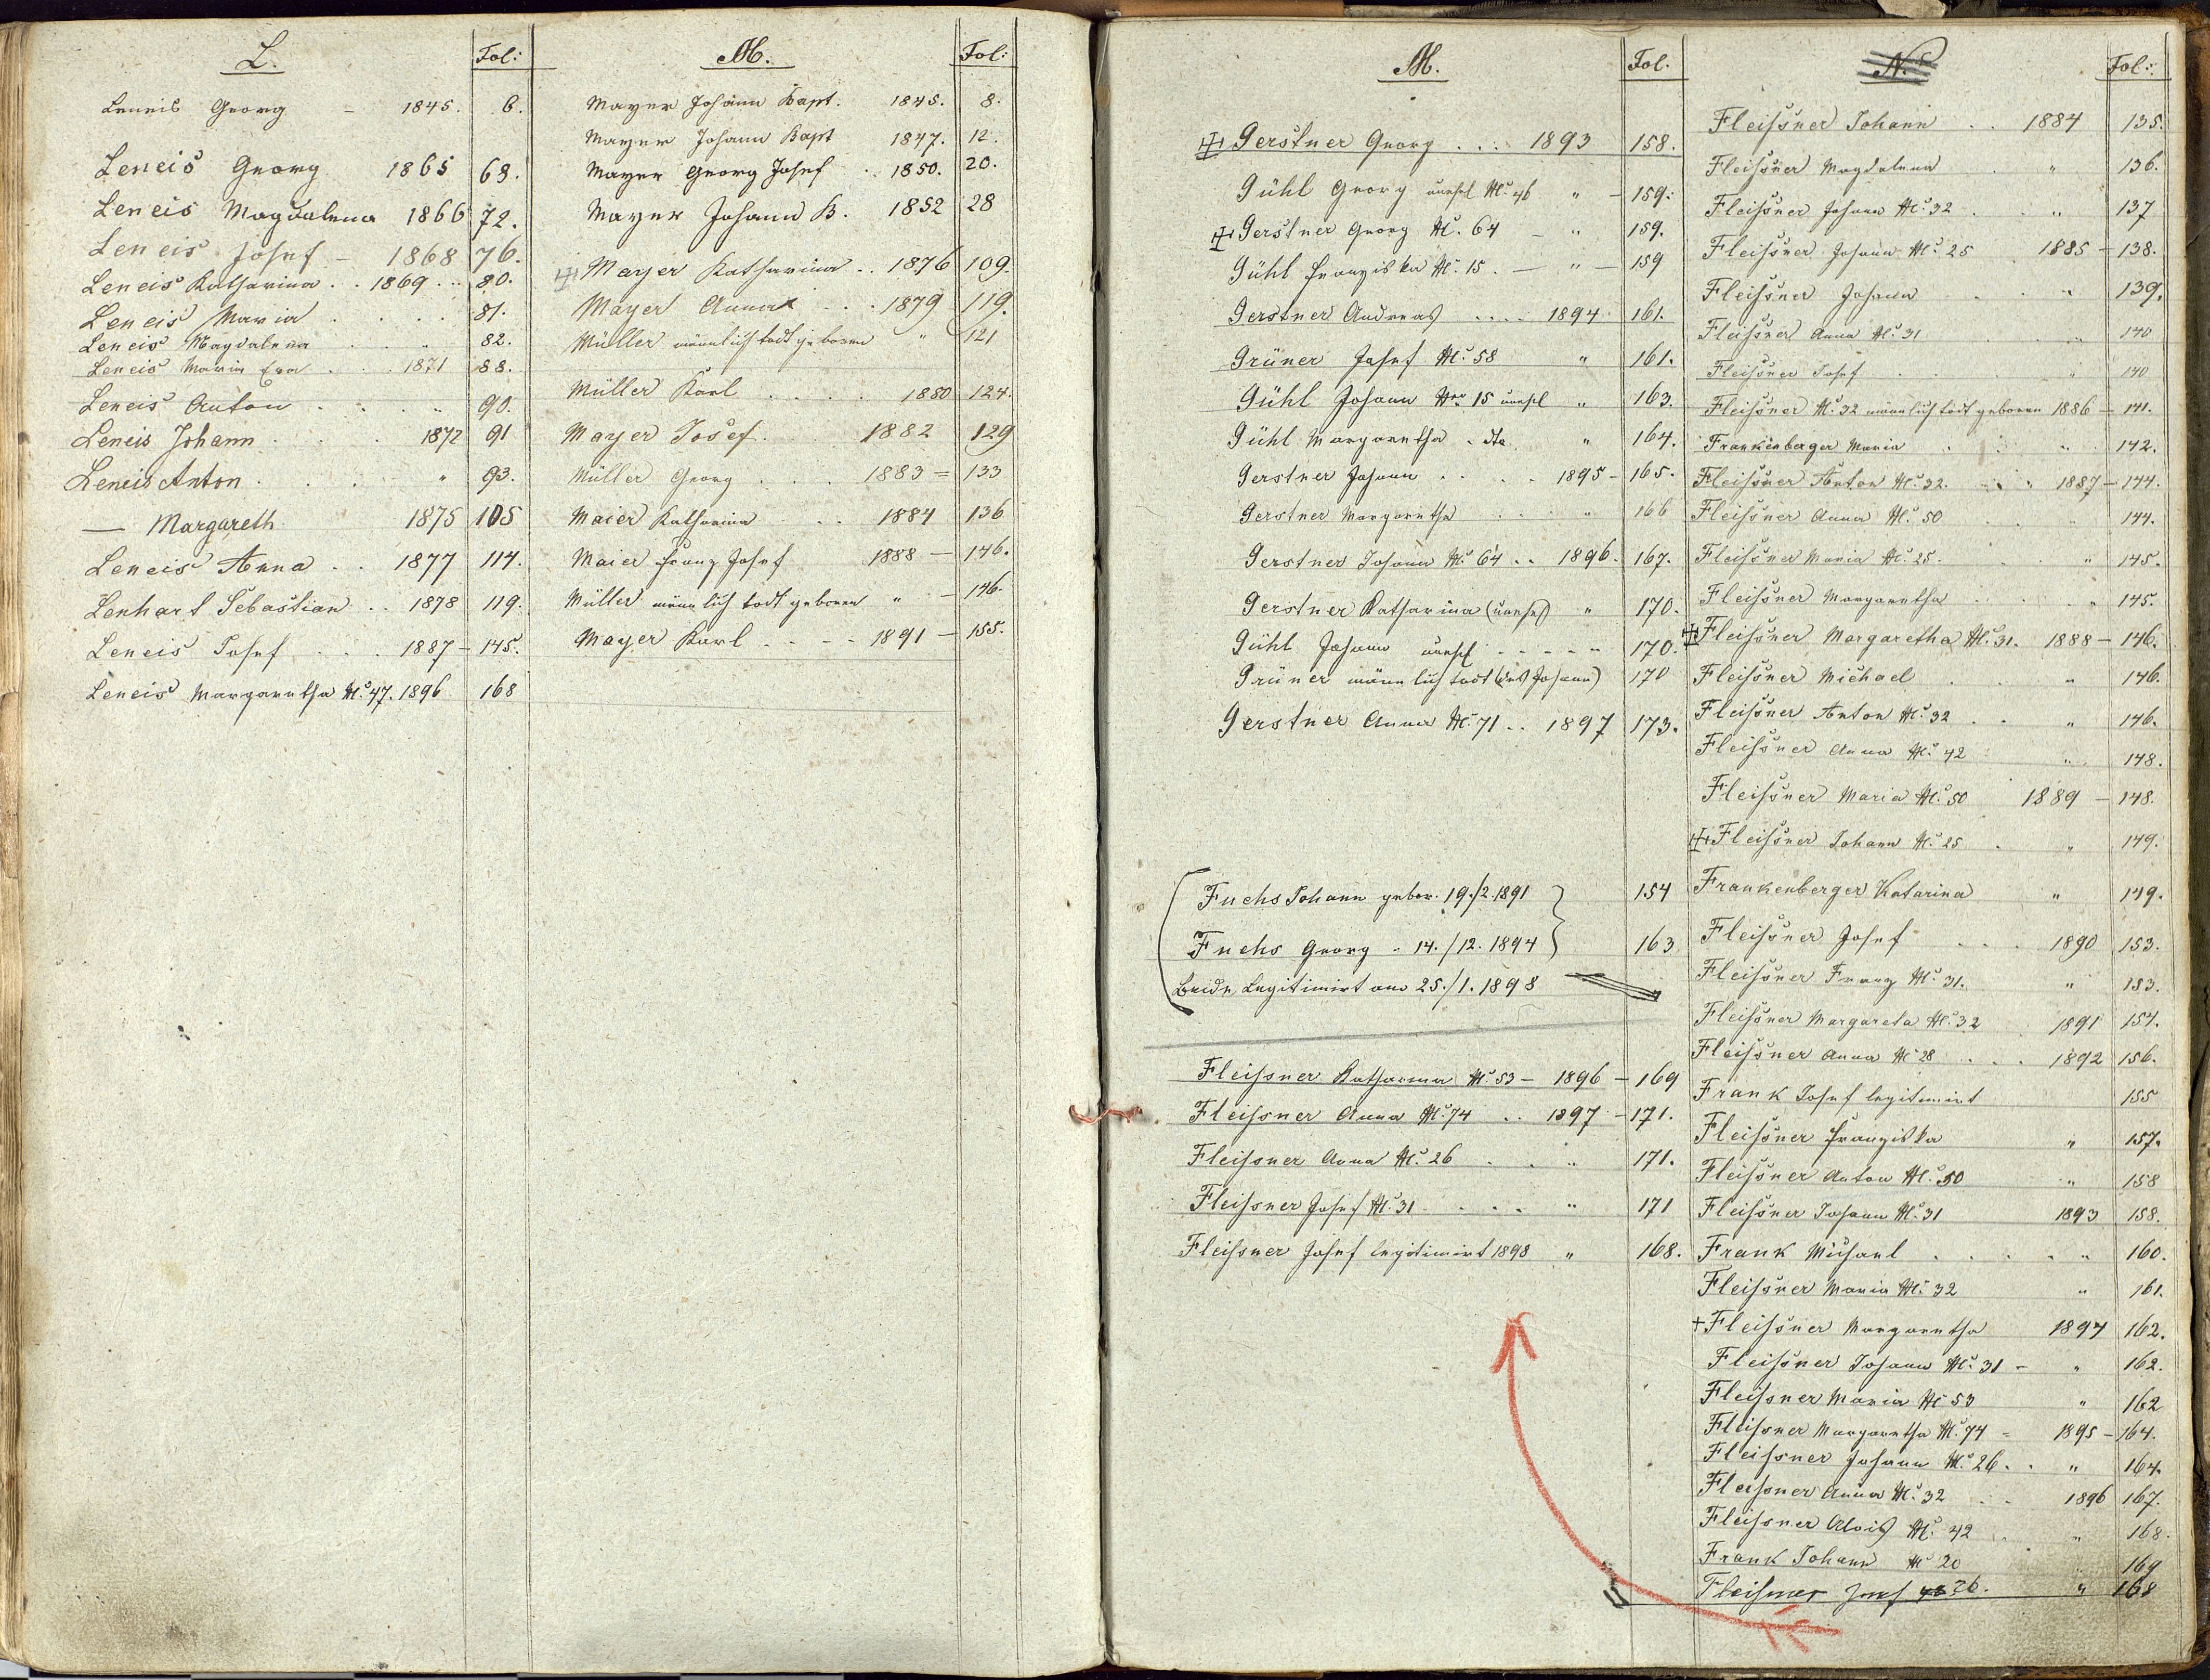 L. Fol:
Leneis Georg - 1845. 6.
Leneis Georg 1865 69.
Leneis Magdalena 1866 72.
Leneis Josef - 1868 76.
Leneis Katharina . . 1869 . . 80.
Leneis Maria . . . . 81.
Leneis Magdalena . . " 82.
Leneis Maria Eva . . . 1871 88.
Leneis Anton . . . " 90.
Leneis Johann . . . 1872 91
Leneis Anton . . . " 93.
— Margareth 1875 105
Leneis Anna . . 1877 114.
Lenhart Sebastian . . 1878 119.
Leneis Josef . . . 1887 - 145.
Leneis Margaretha No. 47. 1896 168
M. Fol:
Mayer Johann Bapt. 1845. 8.
Mayer Johann Bapt 1847. 12.
Mayer Georg Josef . . 1850. 20.
Mayer Johann B. 1852 28
Mayer Katharina . . 1876 109.
Mayer Anna . . . 1879 119.
Müller männlich todt geboren " 121
Müller Karl . . . . . 1880 124.
Mayer Josef . . . 1882 129
Müller Georg . . . . 1883 = 133
Maier Katharina . . . 1884 136
Maier Franz Josef 1888 — 146.
Müller männlich todt geboren " — 146.
Mayer Karl . . - - 1891 — 155.
M. Fol.
Gerstner Georg . . . . 1893 158.
Gühl Georg unehl No. 46 " - 159.
Gerstner Georg No. 64 — " 159.
Gühl Franziska No. 15. — " — 159
Gerstner Andreas . . . . 1894 161.
Grüner Josef No. 58 " 161.
Gühl Johann Nro 15 unehl " 163.
Gühl Margaretha - dto " 164.
Gerstner Johann . . . . 1895 - 165.
Gerstner Margaretha . . . " 166
Gerstner Johann No. 64 . . 1896. 167.
Gerstner Katharina (unehl) " 170.
Gühl Johann unehl - - - - - 170.
Grüner männlich todt (des Johann) 170
Gerstner Anna No. 71 . . 1897 173.
Fuchs Johann gebor. 19./2. 1891 154
Fuchs Georg - 14./12. 1894 163
Beide Legitimirt am 25./1. 1898
Fleissner Katharina No. 53 - 1896 - 169
Fleissner Anna No. 74 . . 1897 - 171.
Fleissner Anna No. 26 . . " 171.
Fleissner Josef No. 31 . . . . " 171
Fleissner Josef legitimirt 1898 " 168.
N. Fol:
Fleissner Johann . . 1884 135.
Fleissner Magdalena . " 136.
Fleissner Johann No. 32 . . " 137
Fleissner Johann No. 25 . 1885 - 138.
Fleissner Johann . . " 139.
Fleissner Anna No. 31 . " 140
Fleissner Josef . . " 140
Fleissner No. 32 männlich todt geboren 1886 — 141.
Frankenberger Maria . . " 142.
Fleissner Anton No. 32. . . 1887 — 144.
Fleissner Anna No. 50 . . " 144.
Fleissner Maria No. 25. . . " 145.
Fleissner Margaretha . . " 145.
Fleissner Margaretha No. 31. 1888 — 146.
Fleissner Michael . . " 146.
Fleissner Anton No. 32 . . " 146.
Fleissner Anna No. 42 " 148.
Fleissner Maria No. 50 1889 — 148.
Fleissner Johann No. 25 . " 149.
Frankenberger Katarina " 149.
Fleissner Josef . . . . 1890 153.
Fleissner Franz No. 31. " 153.
Fleissner Margareta No. 32 . 1891 154.
Fleissner Anna No. 28 . . . 1892 156.
Frank Josef legitimirt 155
Fleissner Franziska " 157.
Fleissner Anton No. 50 " 158
Fleissner Johann No. 31 1893 158.
Frank Michael . . . . " 160.
Fleissner Maria No. 32 " 161.
Fleissner Margaretha 1894 162.
Fleissner Johann No. 31 - " 162.
Fleissner Maria No 53 " 162
Fleissner Margaretha No. 74 = 1895 - 164.
Fleissner Johann No. 26 . . " 164.
Fleissner Anna No. 32 . . 1896 167.
Fleissner Alois No. 42 . " 168.
Frank Johann No 20 " 169
Fleissner Josef 26. " 168